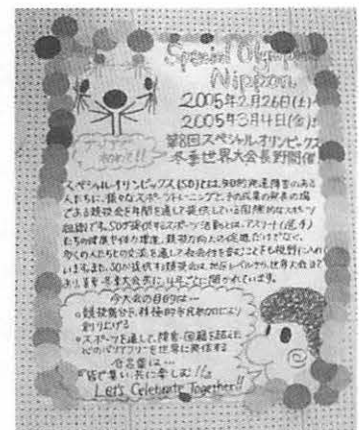 Special Olympics
Nippon
2005年2月26日(土)〜
2005年3月4日(金)
アジアで
初めて!!
第8回スペシャルオリンピックス
冬季世界大会長野開催
スペシャルオリンピックス(SO)とは、知的発達障害のある
人たちに、様々なスポーツトレーニングと、その成果の発表の場
である競技会を年間を通じて提供している国際的なスポーツ
組織です。SOが提供するスポーツ活動とは、アスリート(選手)
たちの健康や体力増進、競技力向上の促進だけでなく、
多くの人たちとの交流を通して社会性を育むことをも視野に入れて
います。また、SOが提供する競技会は、地区レベルから、世界大会まで
あり、夏季・冬季大会共に、4年ごとに開かれています。
今大会の目的は…
スポーツを通して、障害・国籍を超えた
心のバリアフリーを世界に発信する
合言葉は…
皆で集い、共に楽しむ!!
Let's Celebrate Together!!